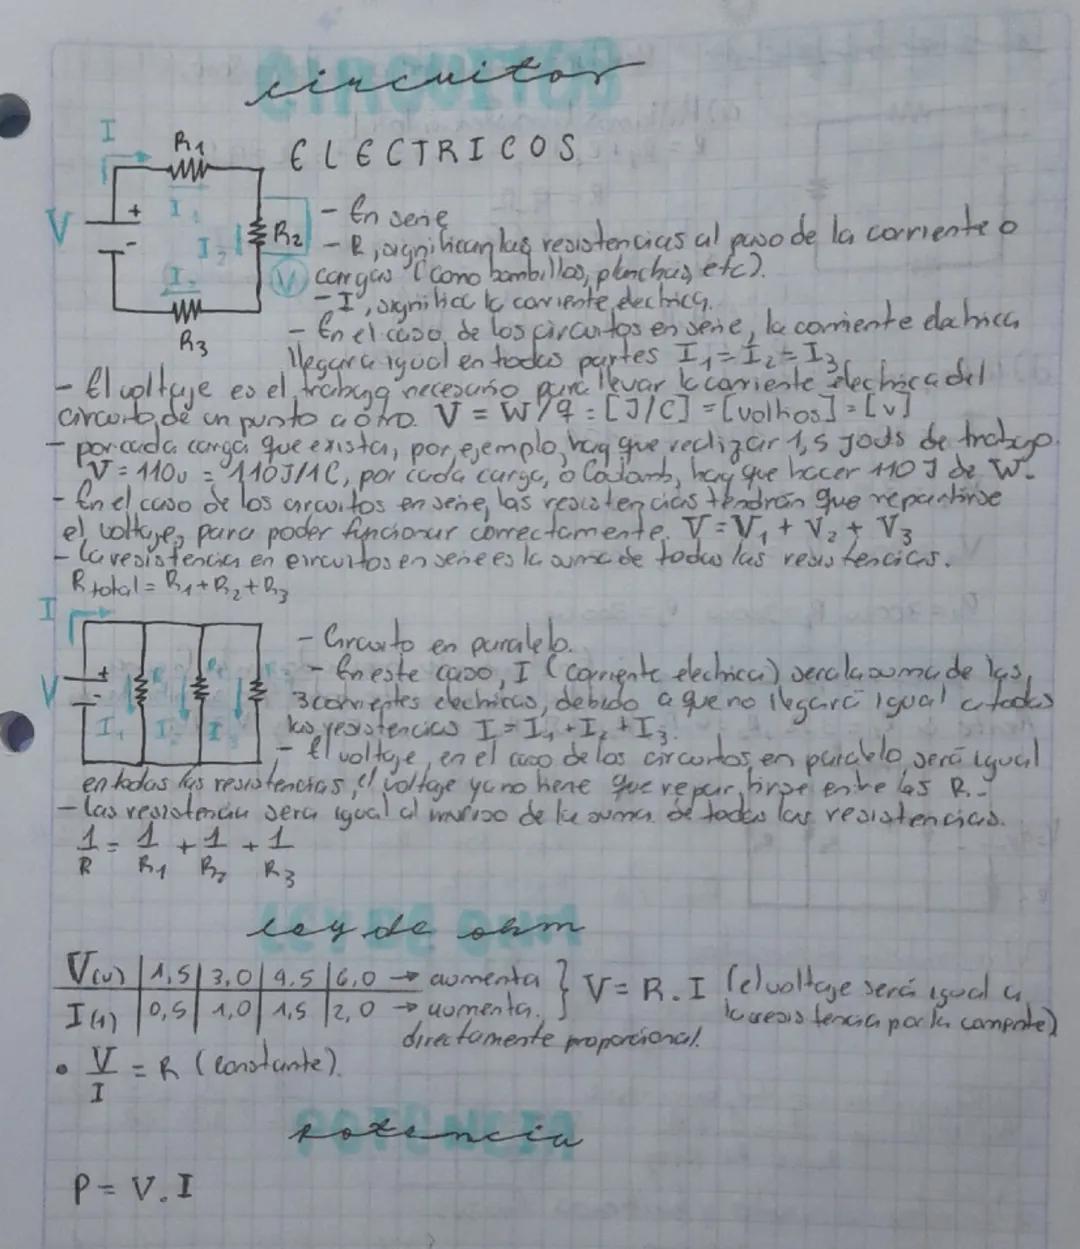 circuitos
ELECTRICOS
I
R1
V
+
-
I1
I2
R2
V
I3
R3
- En serie
- R, significan las resistencias al paso de la corriente o
cargas (como bombillos, planchas, etc).
- I, significa la corriente electrica.
- En el caso de los circuitos en serie, la corriente electrica
llegara igual en todas partes I1 = I2 = I3
- El voltaje es el trabajo necesario para llevar la corriente electrica del
circuito, de un punto a otro. V = W/q = [J/C] = [voltios] = [v]
- por cada carga que exista, por ejemplo, hay que realizar 1,5 jouls de trabajo.
V = 110v = 110J/1C, por cada carga, o Coulomb, hay que hacer 110 J de W.
- En el caso de los circuitos en serie, las resistencias tendrán que repartirse
el voltaje, para poder funcionar correctamente. V = V1 + V2 + V3
- La resistencia en circuitos en serie es la suma de todas las resistencias.
R total = R1 + R2 + R3
I
V
+
-
I1
I2
I
- Circuito en paralelo.
- En este caso, I (corriente electrica) sera la suma de las
3 corrientes electricas, debido a que no llegará igual a todas
las resistencias I = I1 + I2 + I3.
- El voltaje, en el caso de los circuitos en paralelo, será igual
en todas las resistencias, el voltaje ya no tiene que repartirse entre las R.
- Las resistencia sera igual al inverso de la suma de todas las resistencias.
1/R = 1/R1 + 1/R2 + 1/R3
ley de ohm
V(v) | 1,5 | 3,0 | 4,5 | 6,0 → aumenta } V = R . I (el voltaje será igual a
I(A) | 0,5 | 1,0 | 1,5 | 2,0 → aumenta. la resistencia por la corriente)
directamente proporcional.
• V/I = R (constante).
potencia
P = V . I